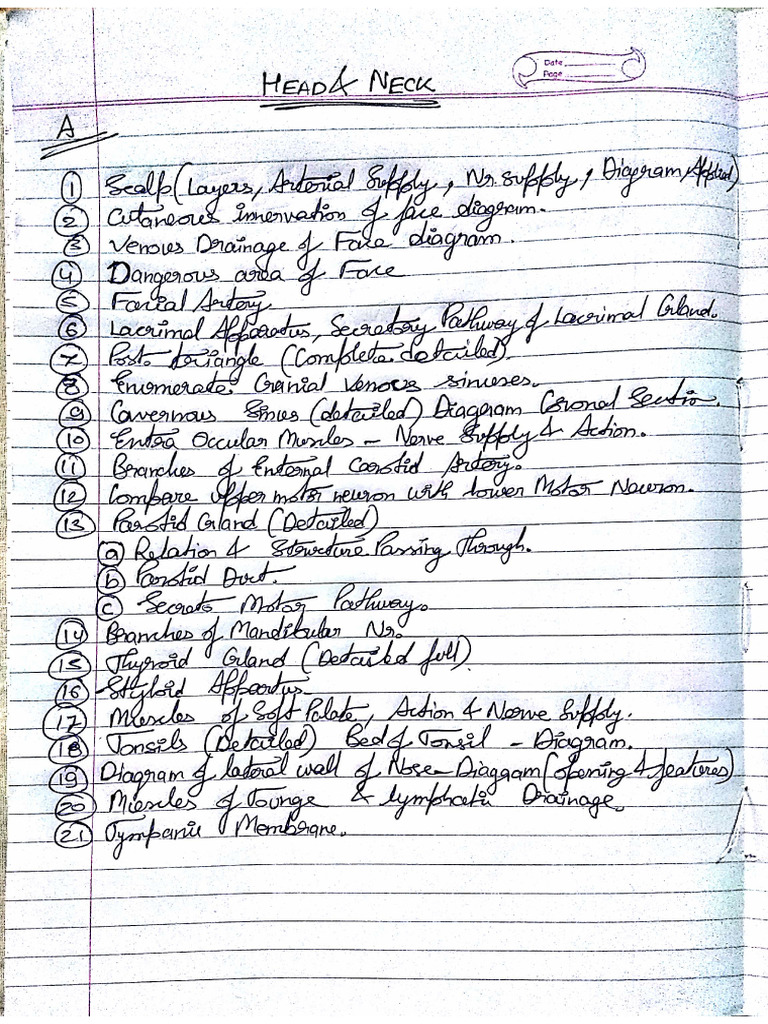 HEAD & NECK
Date
Page
A
① Scalp (Layers, Arterial Supply, Nr. supply, Diagram, Applied)
② Cutaneous innervation of face diagram.
③ Venous Drainage of Face diagram.
④ Dangerous area of Face
⑤ Facial Artery
⑥ Lacrimal Apparatus, Secratory Pathway of Lacrimal Gland.
⑦ Post. triangle (Complete detailed).
⑧ Enumerate: Cranial Venous sinuses.
⑨ Cavernous Sinus (detailed) Diagram Coronal Section.
⑩ Extra Occular Muscles – Nerve Supply & Action.
⑪ Branches of External Carotid Artery.
⑫ Compare upper motor neuron with lower Motor Neuron.
⑬ Parotid Gland (Detailed)
ⓐ Relation & Structure Passing Through.
ⓑ Parotid Duct.
ⓒ Secreto Motor Pathway.
⑭ Branches of Mandibular Nr.
⑮ Thyroid Gland (Detailed full)
⑯ Styloid Appartus
⑰ Muscles of Soft Palate, Action & Nerve Supply.
⑱ Tonsils (Detailed) Bed of Tonsil – Diagram.
⑲ Diagram of lateral wall of Nose – Diagram (opening & features)
⑳ Muscles of Tounge & lymphatic Drainage.
㉑ Tympanic Membrane.